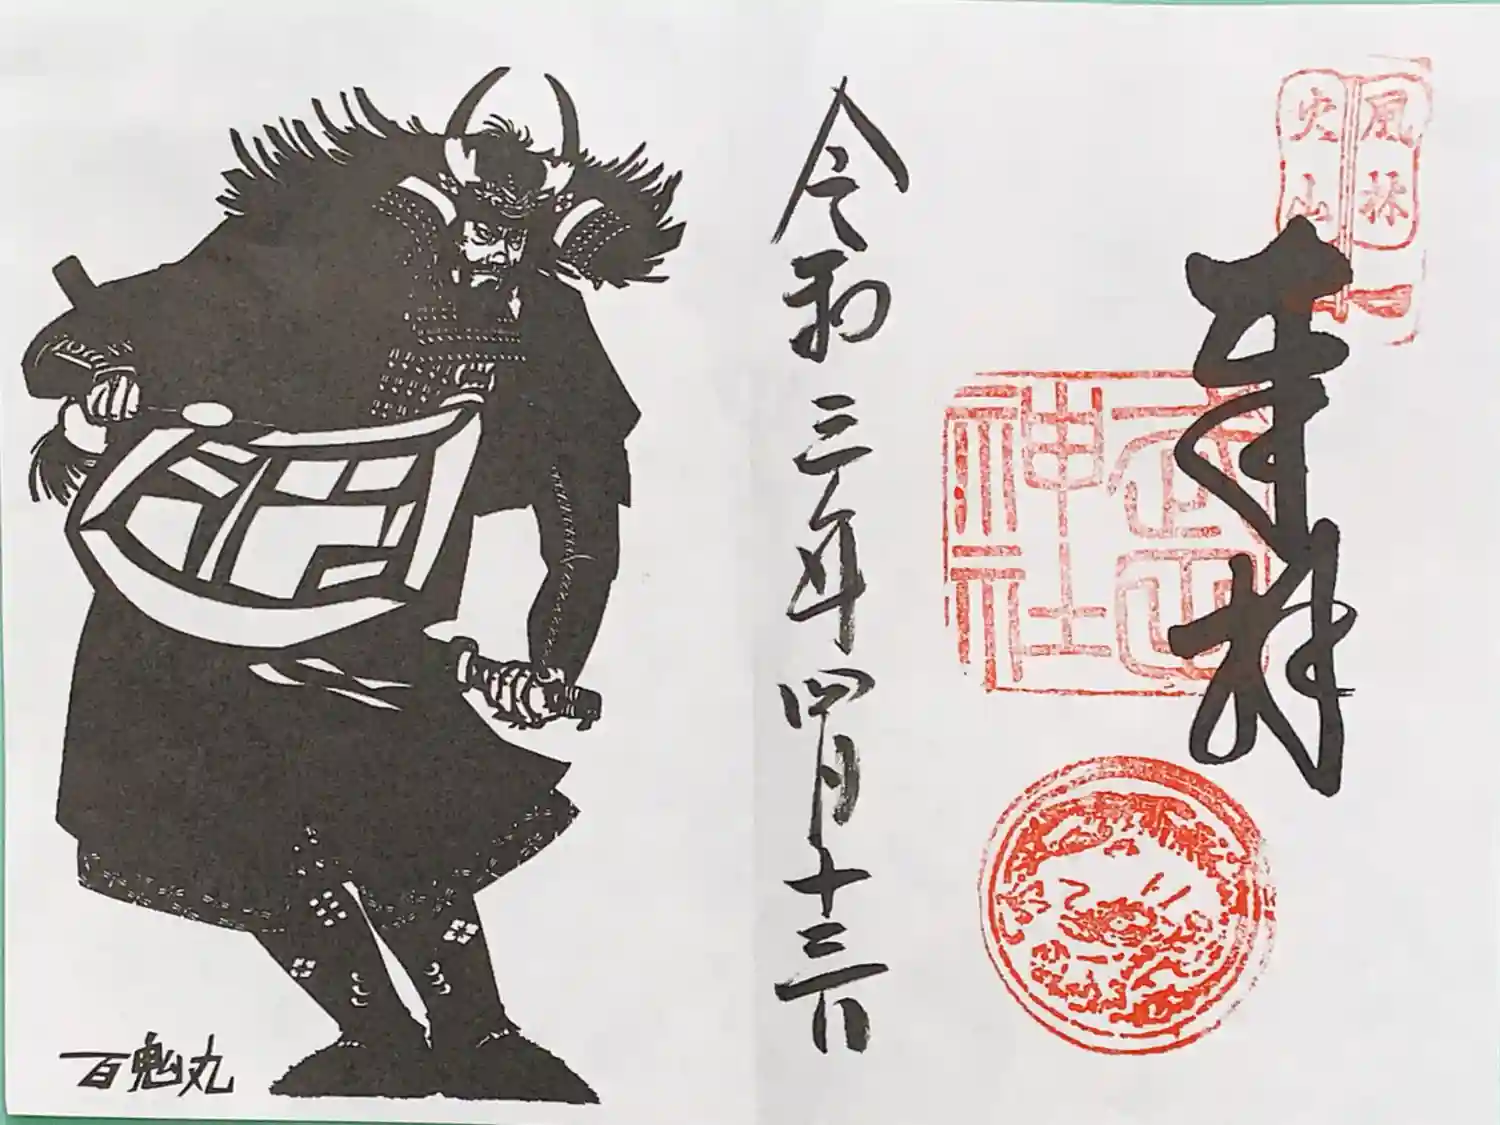 風林
火山
奉拝
武田
神社
令和三年四月十三日
百鬼丸